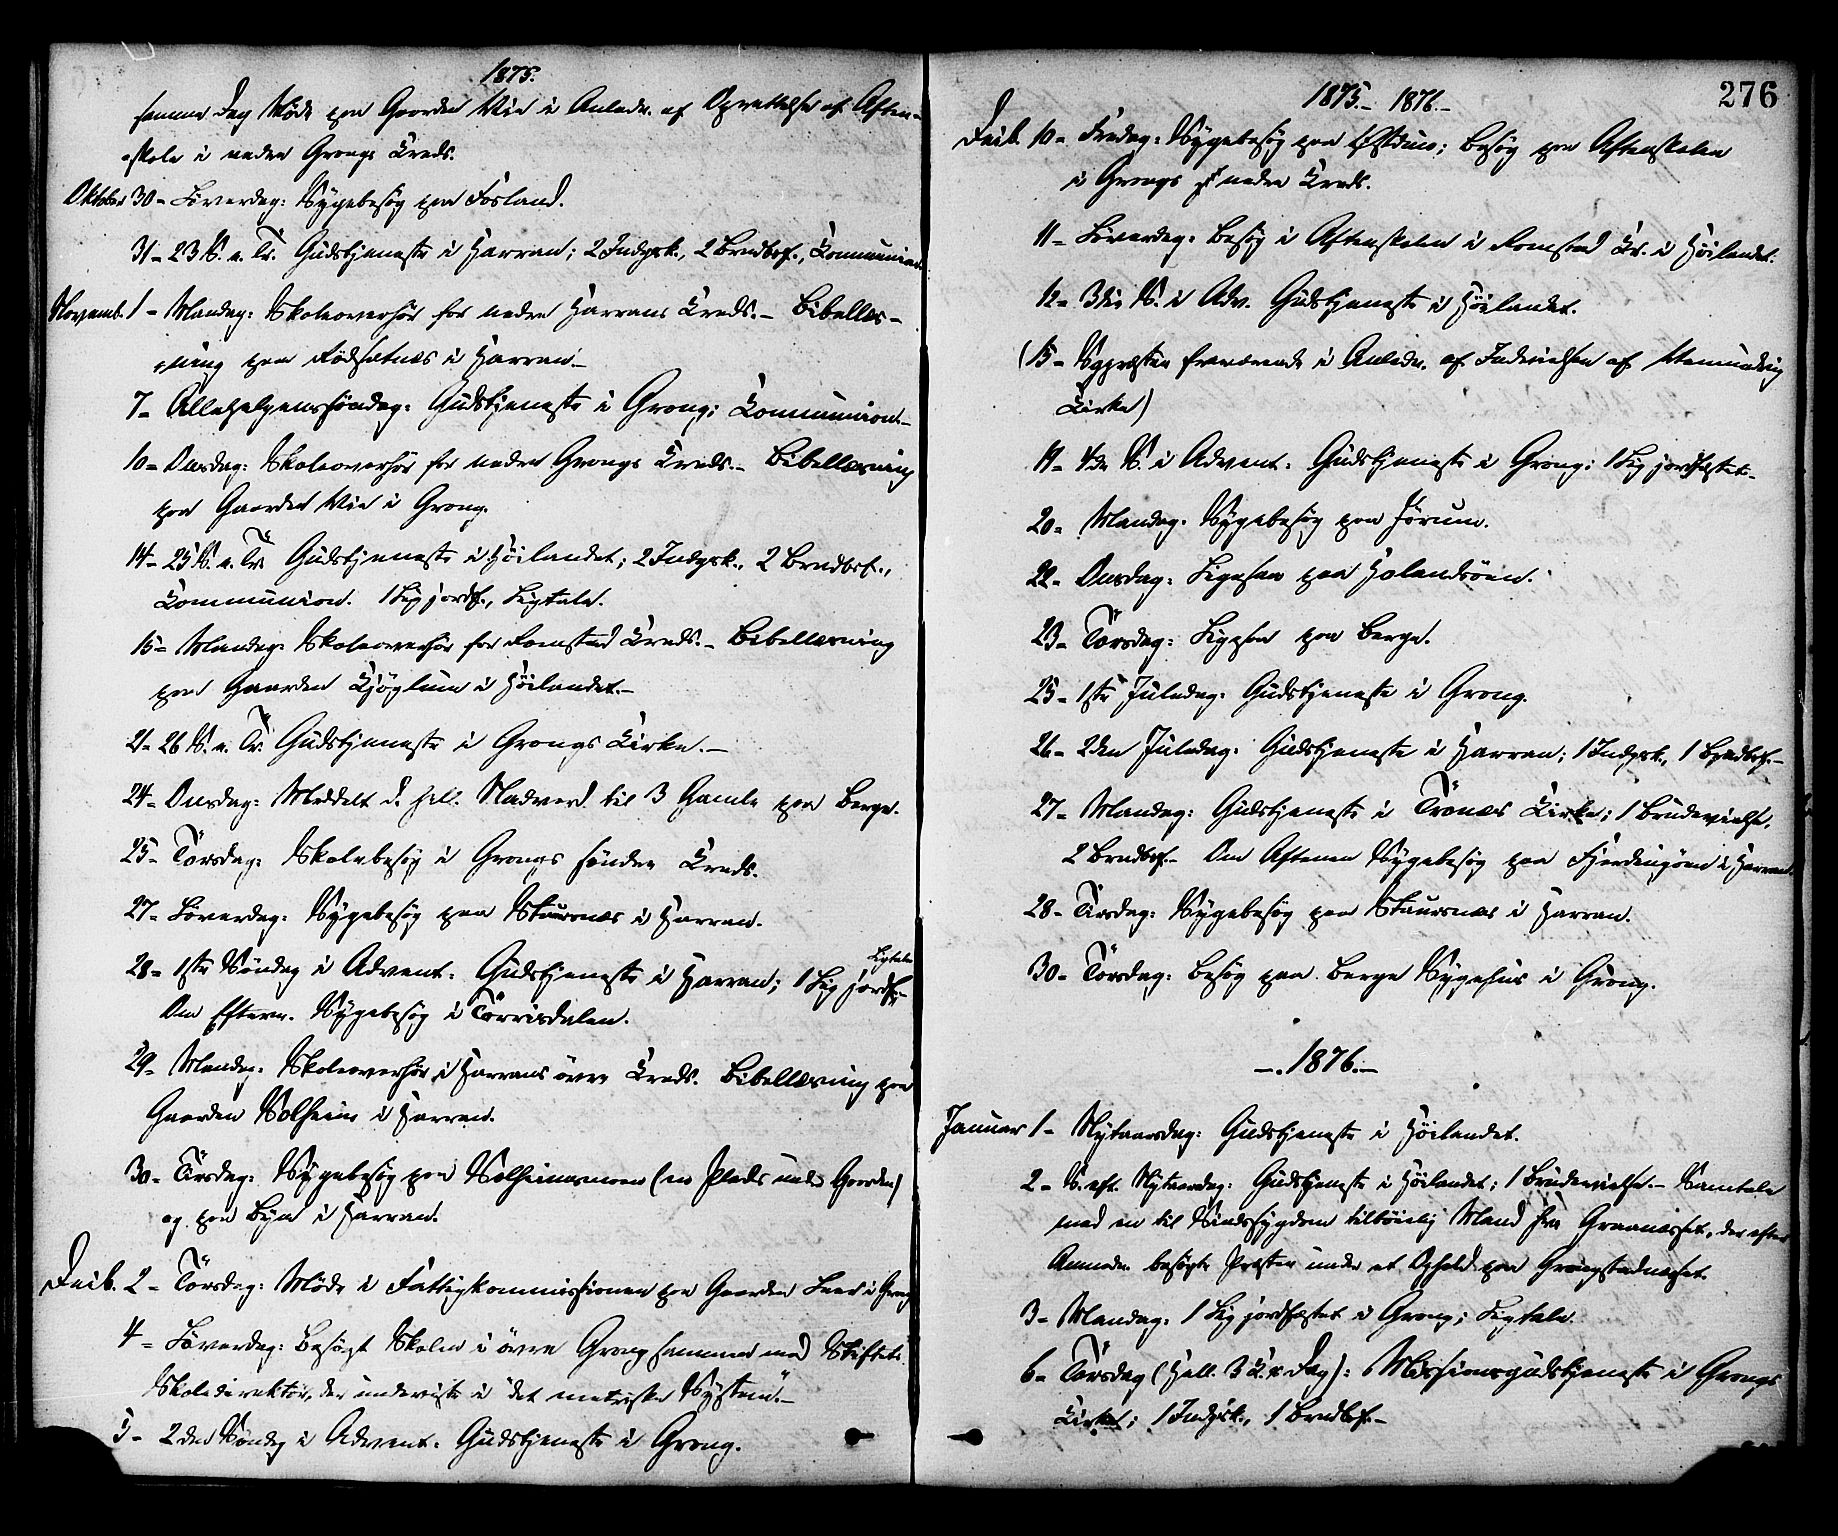 1875.
samme Dag Møde paa Gaarden Vie i Anledn. af Oprettelse af Aften-
skole i nedre Grongs Kreds.
Oktober 30 - Løverdag: Sygebesøg paa Fosland.
31 - 23 S. e. Tr. Gudstjeneste i Harran; 2 Indgsk., 2 Brudevf., Communion.
Novemb. 1 - Mandag: Skoleoverhør for nedre Harrans Kreds. - Bibellæs-
ning paa Fødsætnæs i Harran. -
7 - Allehelgenssøndag: Gudstjeneste i Grong; Communion. -
10 - Onsdag: Skoleoverhør for nedre Grongs Kreds. - Bibellæsning
paa Gaarden Vie i Grong.
14 - 25 S. e. Tr. Gudstjeneste i Høilandet; 2 Indgsk., 2 Brudevf.,
Communion. 1 Lig jordf., Ligtale.
15 - Mandag: Skoleoverhør for Romstad Kreds. - Bibellæsning
paa Gaarden Kjøglum i Høilandet. -
21 - 26 S. e. Tr. Gudstjeneste i Grongs Kirke. -
24 - Onsdag: Meddelt d. hell. Nadverd til 3 Gamle paa Berge.
25 - Torsdag: Skolebesøg i Grongs søndre Kreds.
27 - Løverdag: Sygebesøg paa Staursnæs i Harran.
28 - 1ste Søndag i Advent: Gudstjeneste i Harran; 1 Lig jordf., Ligtale
Om Efterm. Sygebesøg i Tørrisdalen.
29 - Mandag: Skoleoverhør i Harrans øvre Kreds. Bibellæsning paa
Gaarden Solheim i Harran.
30 - Tirsdag: Sygebesøg paa Solheimsmoen (en Plads under Gaarden)
og paa Bya i Harran.
Decb. 2 - Torsdag: Møde i Fattigkommissionen paa Gaarden i Grong
4 - Løverdag: Besøgt Skolen i øvre Grong sammen med Stiftets
Skoledirektør, der underviste i "det metriske System". -
5 - 2den Søndag i Advent: Gudstjeneste i Grong.
1875. - 1876. -
276
Decb. 10 - Fredag: Sygebesøg paa; Besøg paa Aftenskolen
i Grongs nedre Kreds.
11 - Løverdag: Besøg i Aftenskolen i Romstad Kr. i Høilandet.
12 - 3die S. i Adv. Gudstjeneste i Høilandet.
(15 - Sgpræsten fraværende i Anledn. af Indvielsen af
Kirke)
19 - 4de S. i Advent: Gudstjeneste i Grong; 1 Lig jordfæstet. -
20 - Mandag: Sygebesøg paa Jørum.
22 - Onsdag: Ligesaa paa Holandsøen.
23 - Torsdag: Ligesaa paa Berge.
25 - 1ste Juledag: Gudstjeneste i Grong.
26 - 2den Juledag: Gudstjeneste i Harran; 1 Indgsk., 1 Brudevf. -
27 - Mandag: Gudstjeneste i Trones Kirke; 1 Brudevielse,
2 Brudevf. - Om Aftenen Sygebesøg paa Fjerdingøen i Harran.
28 - Tirsdag: Sygebesøg paa Staursnæs i Harran.
30 - Torsdag: Besøg paa Berge Sygehus i Grong.
- 1876. -
Januar 1 - Nytaarsdag: Gudstjeneste i Høilandet.
2 - S. eft. Nytaarsdag: Gudstjeneste i Høilandet; 1 Brudevielse. - Samtale
med en til Sindssygdom tilbøielig Mand fra Graanæsset, der efter
Anmodn. besøgte Præsten under et Ophold paa Grongstadnæsset.
3 - Mandag: 1 Lig jordfæstet i Grong; Ligtale.
6 - Torsdag (Hell. 3 K. Dag): Missionsgudstjeneste i Grongs
Kirke; 1 Indgsk., 1 Brudevf. -